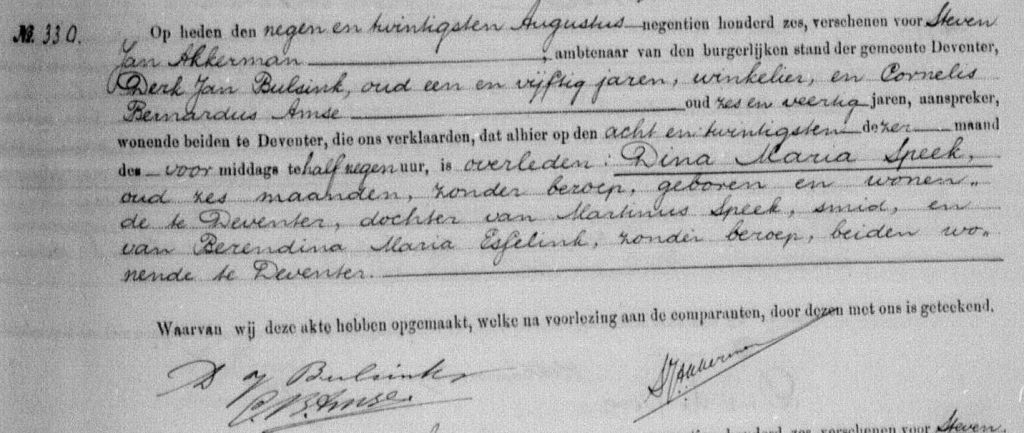 No. 330.
Op heden den negen en twintigsten Augustus negentien honderd zes, verschenen voor Steven
Jan Akkerman, ambtenaar van den burgerlijken stand der gemeente Deventer,
Derk Jan Bulsink, oud een en vijftig jaren, winkelier, en Cornelis
Bernardus Amse oud zes en veertig jaren, aanspreker,
wonende beiden te Deventer, die ons verklaarden, dat alhier op den acht en twintigsten dezer maand
des voor middags te half negen uur, is overleden: Dina Maria Speek,
oud zes maanden, zonder beroep, geboren en wonen„
de te Deventer, dochter van Martinus Speek, smid, en
van Berendina Maria Esselink, zonder beroep, beiden wo„
nende te Deventer.
Waarvan wij deze akte hebben opgemaakt, welke na voorlezing aan de comparanten, door dezen met ons is geteekend.
D J Bulsink
SJAkkerman
C. B. Amse.
honderd zes, verschenen voor Steven